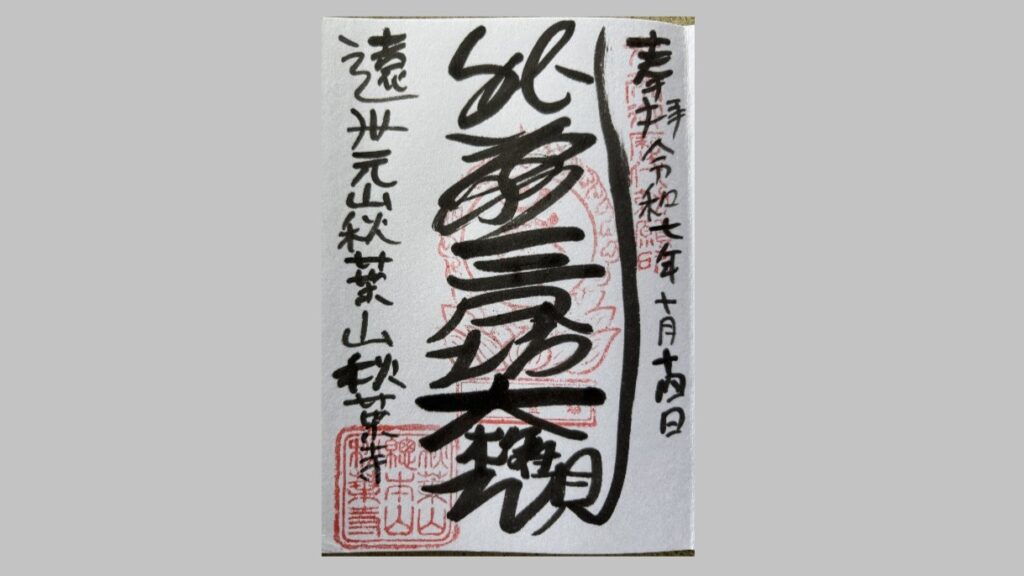 奉拝令和七年十月十四日
三尺坊大權現
遠州元山秋葉山秋葉寺
秋葉山
總本山
秋葉寺